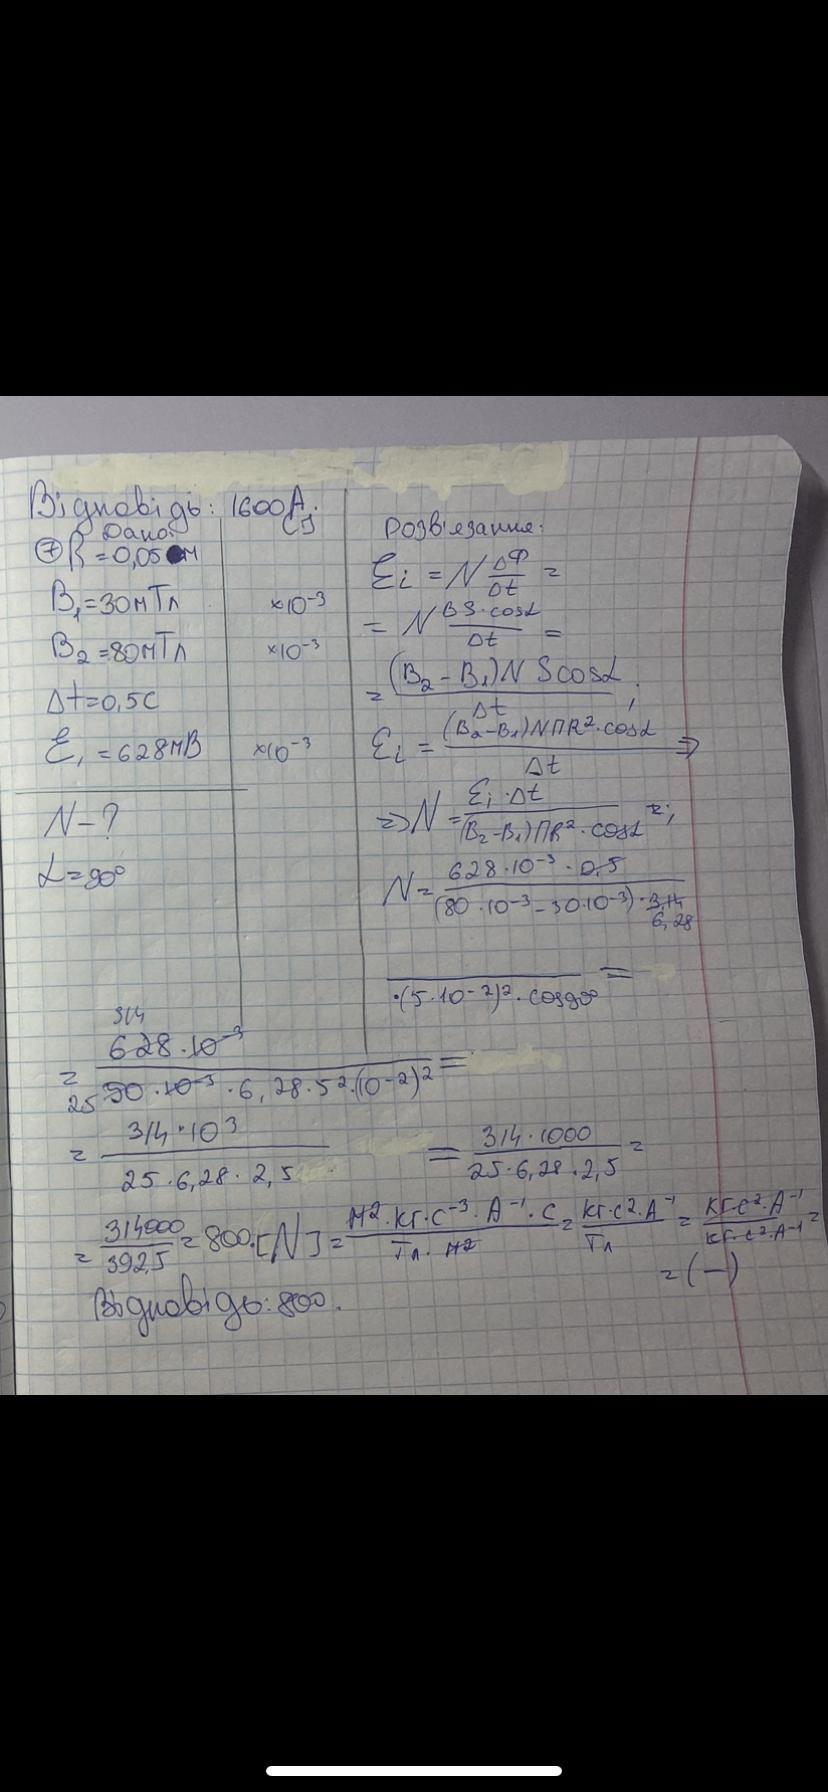 Відповідь: 1600А.
Дано:
⑦ R = 0,05 м
B₁=30мТл ×10⁻³
B₂=80мТл ×10⁻³
Δt=0,5с
Ɛᵢ=628мВ ×10⁻³
N-?
α=90°
Розв'язання:
Ɛi = N ΔΦ/Δt =
= N BS·cosα/Δt =
= (B₂-B₁)N Scosα/Δt;
Ɛi = (B₂-B₁)NПR²·cosα/Δt ⇒
⇒ N = Ɛi·Δt/(B₂-B₁)ПR²·cosα;
N = 628·10⁻³·0,5/(80·10⁻³-30·10⁻³)·3,14
6,28
·(5·10⁻²)²·cos90° =
314
= 628·10⁻³/50·10⁻³·6,28·5²·(10⁻²)² =
25
= 314·10³/25·6,28·2,5 = 314·1000/25·6,28·2,5 =
= 314000/392,5 = 800. [N] = м²·кг·с⁻³·А⁻¹·с/Тл·м² = кг·с²·А⁻¹/Тл = кг·с²·А⁻¹/кг·с²·А⁻¹ =
= (-)
Відповідь: 800.